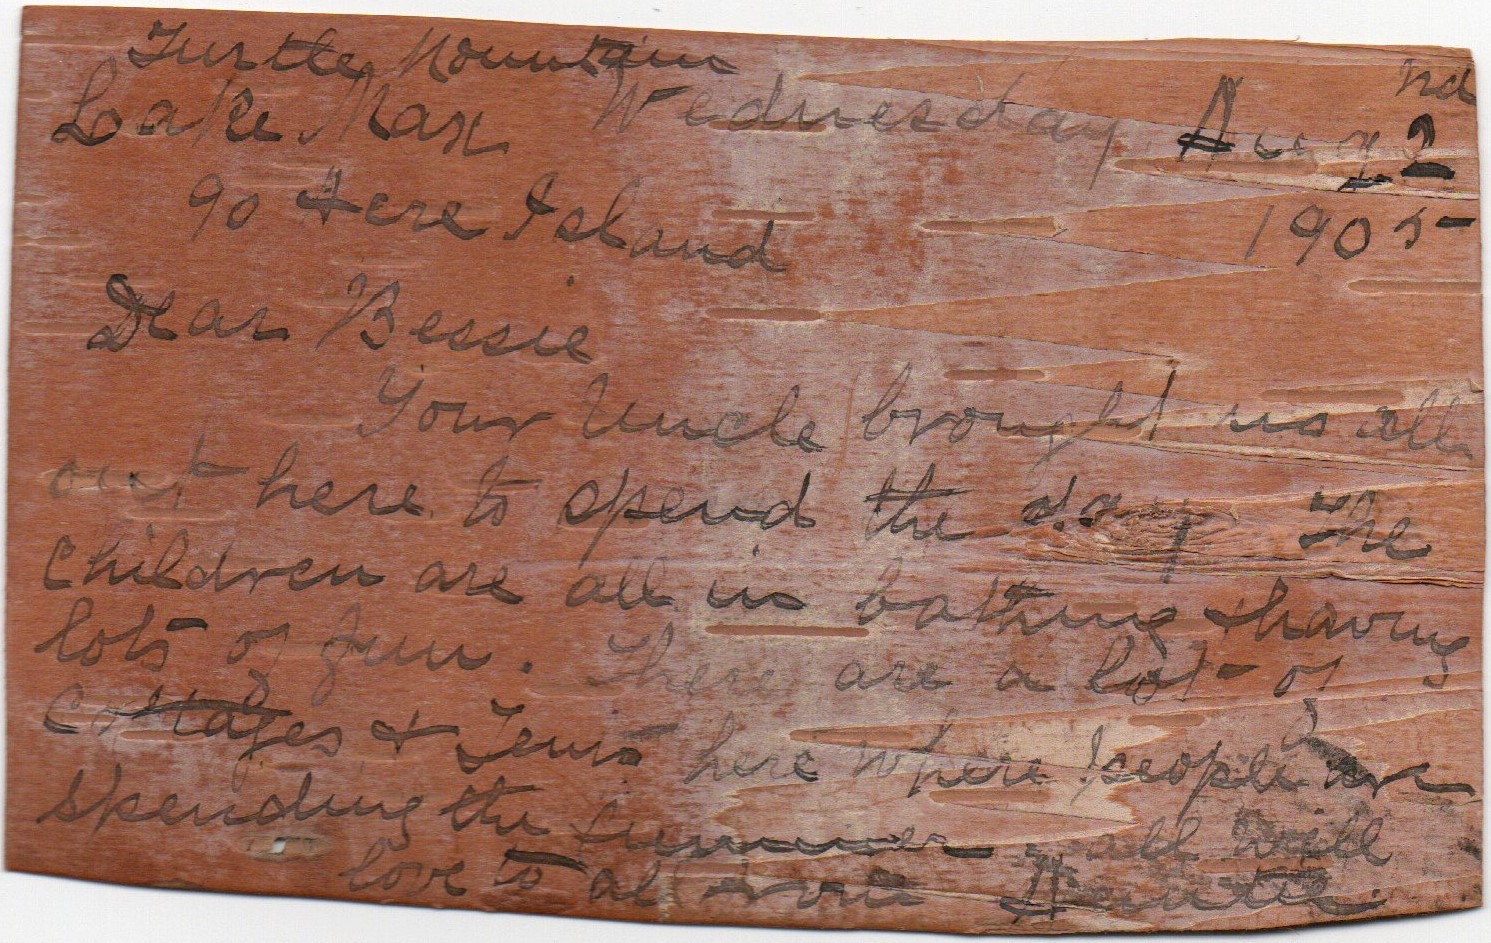 Turtle Mountain
Lake Max Wednesday Aug 2nd
Go Here Island 1905
Dear Bessie
Your Uncle brought us all
out here to spend the day The
children are all in bathing & having
lots of fun. There are a lot of
Cottages & Tents here where people are
spending the summer all well
love to al from Auntie.